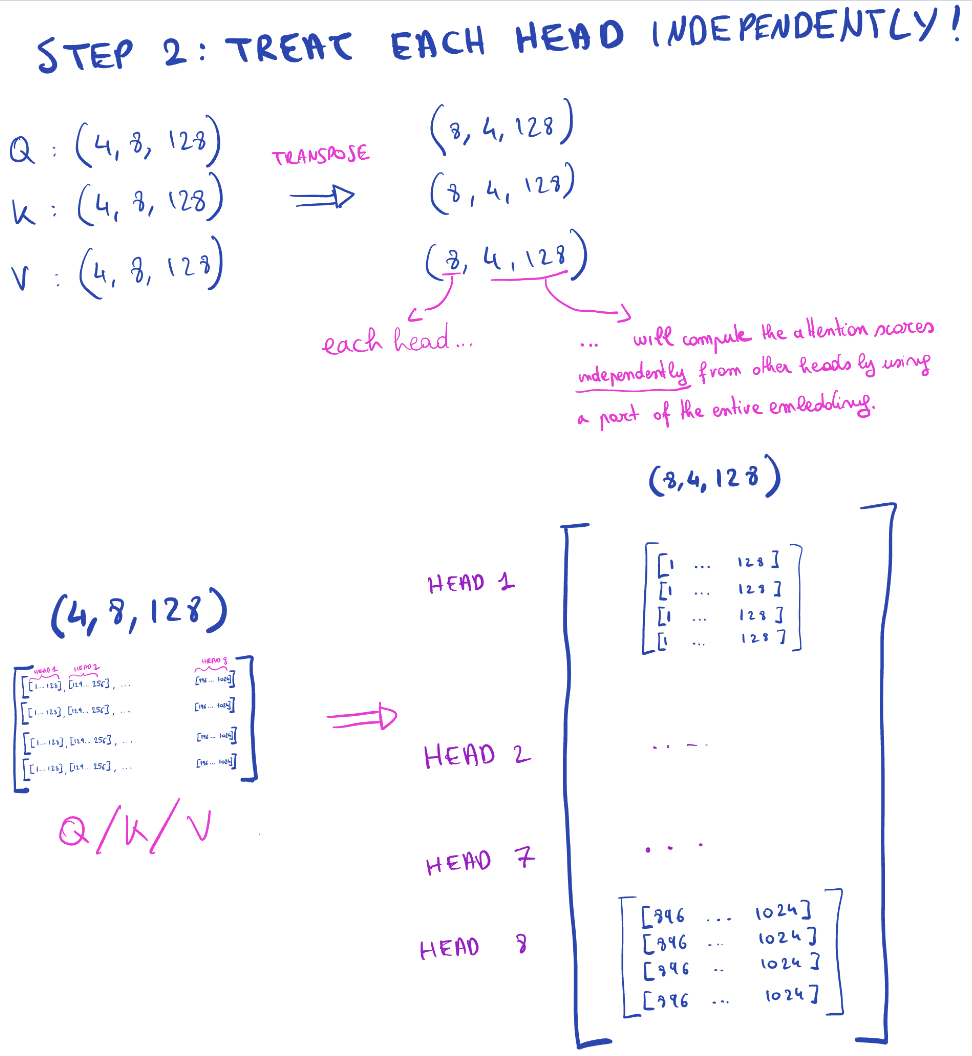 STEP 2: TREAT EACH HEAD INDEPENDENTLY!
Q : (4, 8, 128)
K : (4, 8, 128)
V : (4, 8, 128)
TRANSPOSE
(8, 4, 128)
(8, 4, 128)
(8, 4, 128)
each head...
... will compute the attention scores
independently from other heads by using
a part of the entire embedding.
(4, 8, 128)
HEAD 1 HEAD 2 HEAD 8
[[1...128], [129...256], ... [896...1024]]
[[1...128], [129...256], ... [896...1024]]
[[1...128], [129...256], ... [896...1024]]
[[1...128], [129...256], ... [896...1024]]
Q/K/V
(8, 4, 128)
HEAD 1
[[1 ... 128]
[1 ... 128]
[1 ... 128]
[1 ... 128]]
HEAD 2
....
HEAD 7
...
HEAD 8
[[896 ... 1024]
[896 ... 1024]
[896 .. 1024]
[896 ... 1024]]